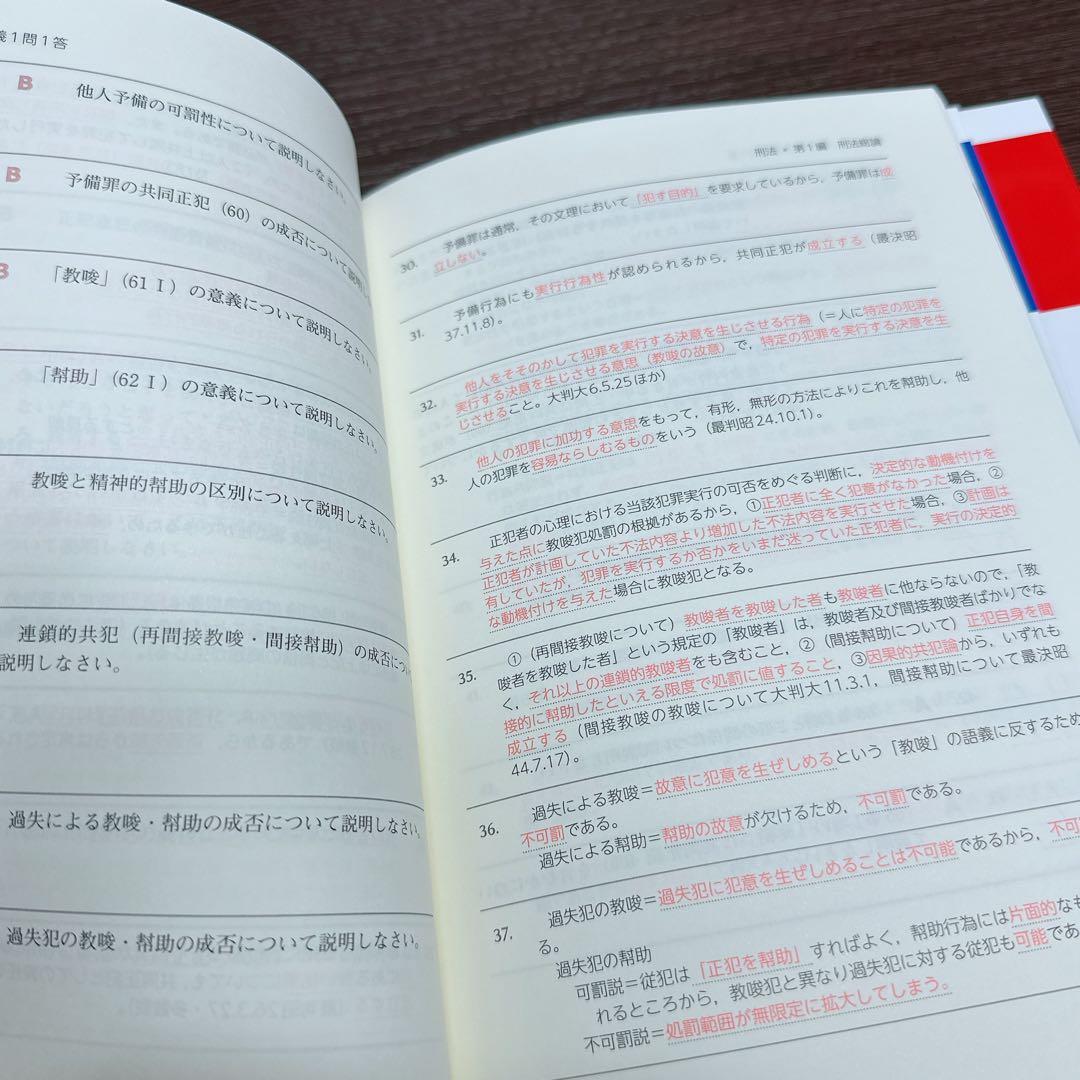 義1問1答
B 他人予備の可罰性について説明しなさい。
B 予備罪の共同正犯（60）の成否について説明しなさい。
B 「教唆」（61Ⅰ）の意義について説明しなさい。
「幇助」（62Ⅰ）の意義について説明しなさい。
教唆と精神的幇助の区別について説明しなさい。
連鎖的共犯（再間接教唆・間接幇助）の成否につ
説明しなさい。
過失による教唆・幇助の成否について説明しなさい。
過失犯の教唆・幇助の成否について説明しなさい。
刑法・第1編 刑法総論
30. 予備罪は通常，その文理において「犯す目的」を要求しているから，予備罪は成
立しない。
31. 予備行為にも実行行為性が認められるから，共同正犯が成立する（最決昭
37.11.8）。
32. 他人をそそのかして犯罪を実行する決意を生じさせる行為（＝人に特定の犯罪を
実行する決意を生じさせる意思（教唆の故意）で，特定の犯罪を実行する決意を生
じさせること。大判大6.5.25ほか）
33. 他人の犯罪に加功する意思をもって，有形，無形の方法によりこれを幇助し，他
人の犯罪を容易ならしむるものをいう（最判昭24.10.1）。
34. 正犯者の心理における当該犯罪実行の可否をめぐる判断に，決定的な動機付けを
与えた点に教唆犯処罰の根拠があるから，①正犯者に全く犯意がなかった場合，②
正犯者が計画していた不法内容より増加した不法内容を実行させた場合，③計画は
有していたが，犯罪を実行するか否かをいまだ迷っていた正犯者に，実行の決定的
な動機付けを与えた場合に教唆犯となる。
35. ①（再間接教唆について）教唆者を教唆した者も教唆者に他ならないので，「教
唆者を教唆した者」という規定の「教唆者」は，教唆者及び間接教唆者ばかりでな
く，それ以上の連鎖的教唆者をも含むこと，②（間接幇助について）正犯自身を間
接的に幇助したといえる限度で処罰に値すること，③因果的共犯論から，いずれも
成立する（間接教唆の教唆について大判大11.3.1，間接幇助について最決昭
44.7.17）。
36. 過失による教唆＝故意に犯意を生ぜしめるという「教唆」の語義に反するため
不可罰である。
過失による幇助＝幇助の故意が欠けるため，不可罰である。
37. 過失犯の教唆＝過失犯に犯意を生ぜしめることは不可能であるから，不可
る。
過失犯の幇助
可罰説＝従犯は「正犯を幇助」すればよく，幇助行為には片面的なも
れるところから，教唆犯と異なり過失犯に対する従犯も可能であ
不可罰説＝処罰範囲が無限定に拡大してしまう。